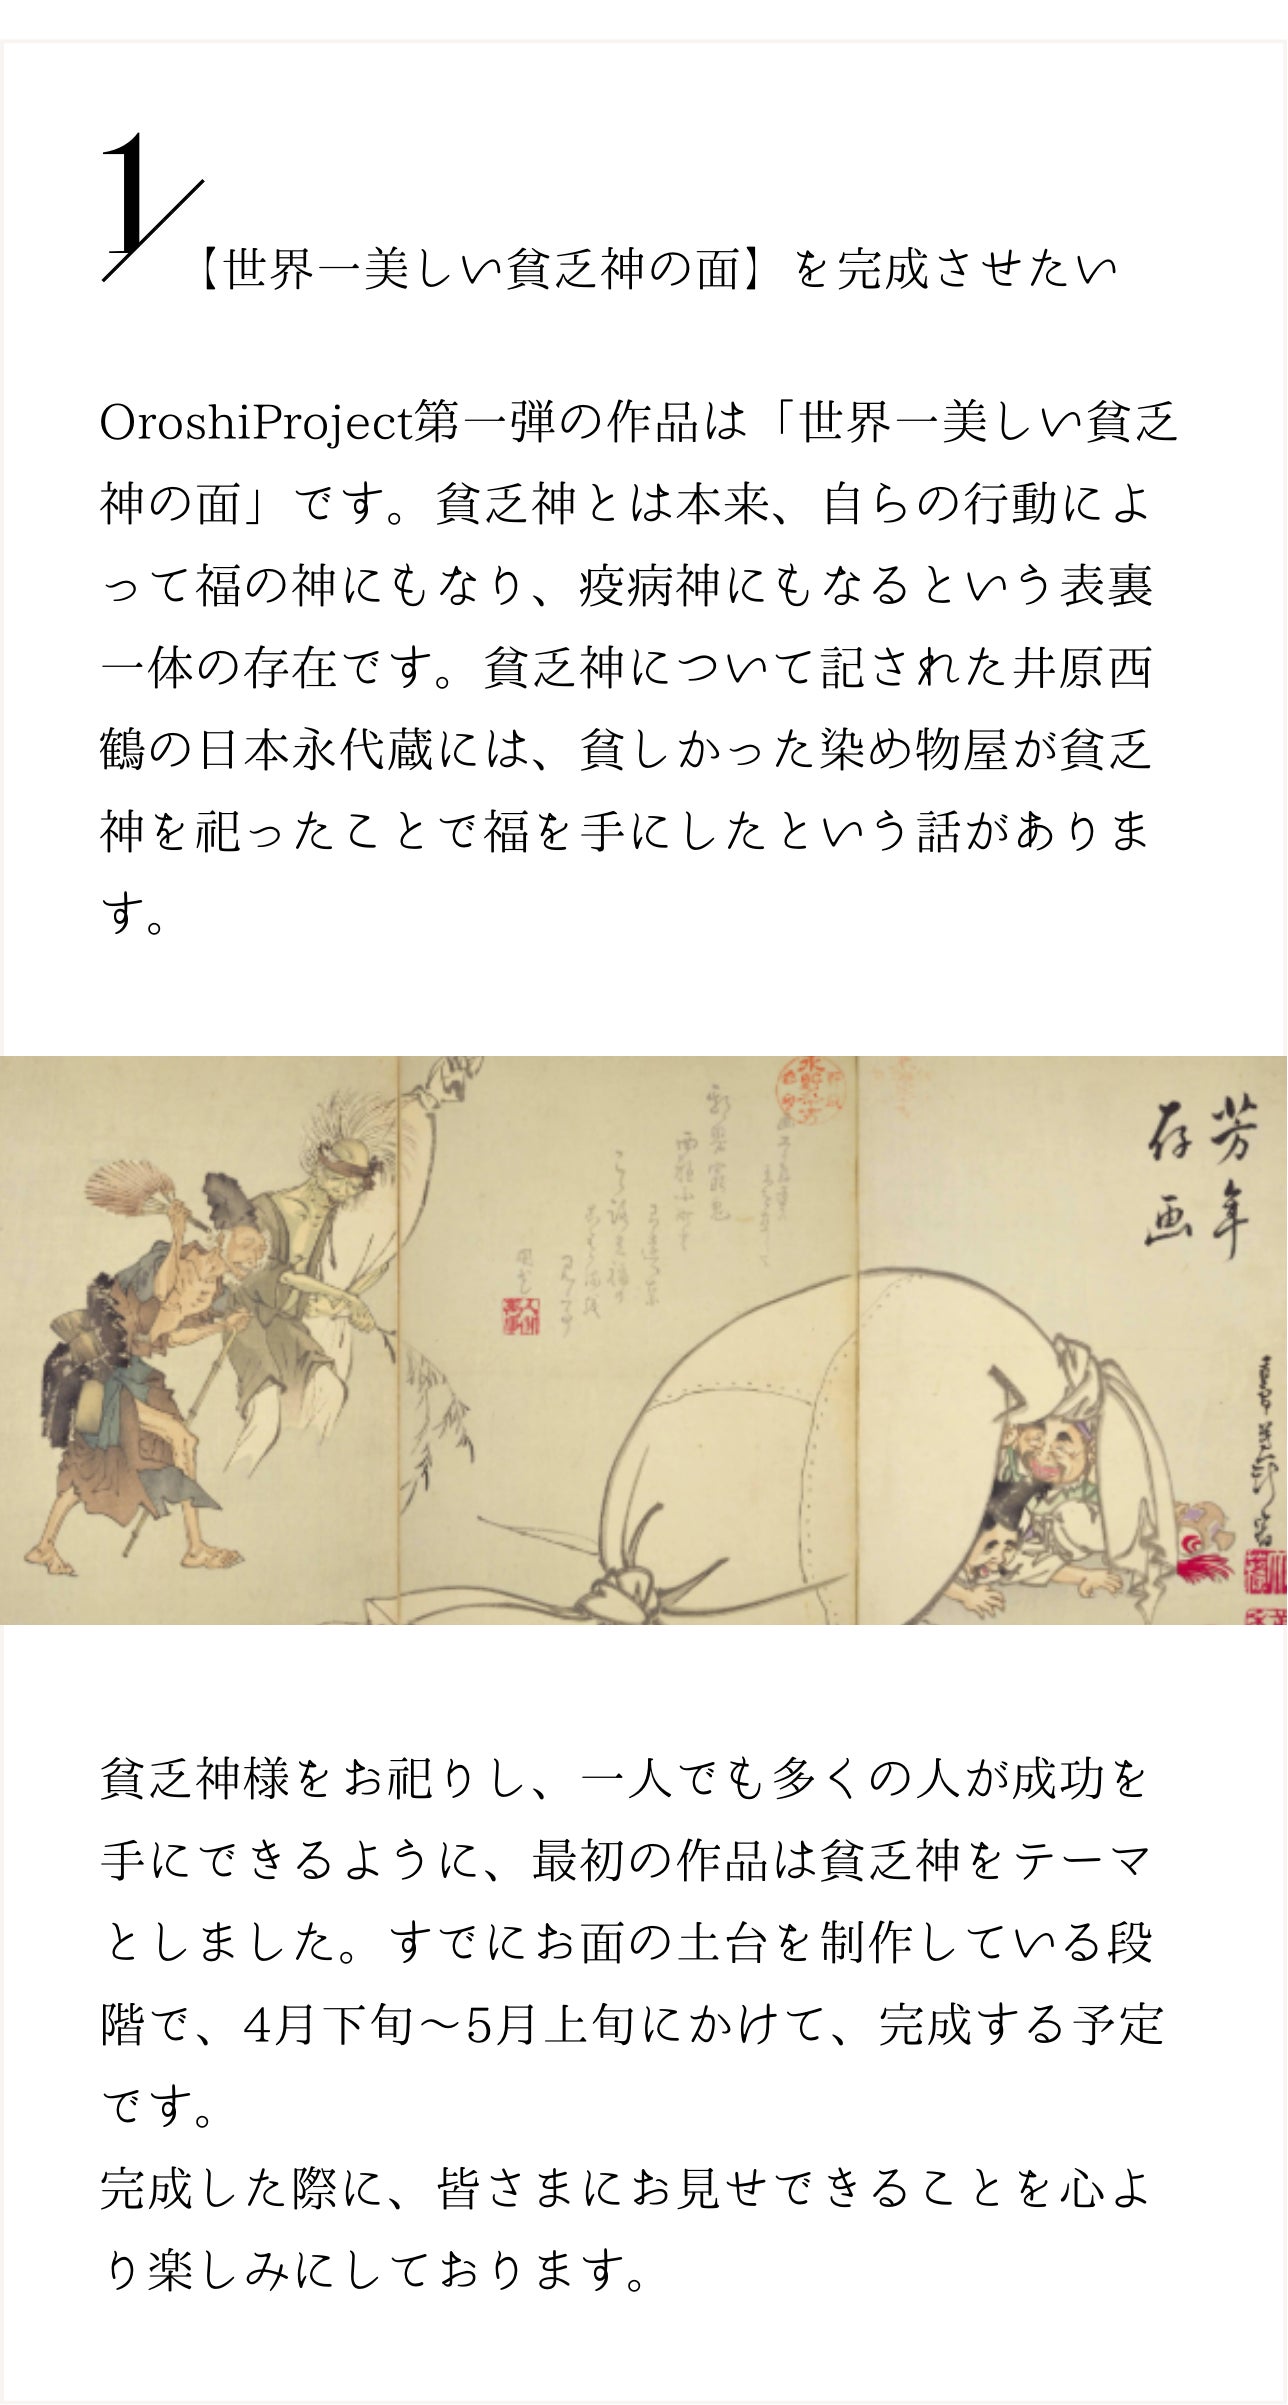 1
【世界一美しい貧乏神の面】を完成させたい
OroshiProject第一弾の作品は「世界一美しい貧乏
神の面」です。貧乏神とは本来、自らの行動によ
って福の神にもなり、疫病神にもなるという表裏
一体の存在です。貧乏神について記された井原西
鶴の日本永代蔵には、貧しかった染め物屋が貧乏
神を祀ったことで福を手にしたという話がありま
す。
芳年
存画
貧乏神様をお祀りし、一人でも多くの人が成功を
手にできるように、最初の作品は貧乏神をテーマ
としました。すでにお面の土台を制作している段
階で、4月下旬〜5月上旬にかけて、完成する予定
です。
完成した際に、皆さまにお見せできることを心よ
り楽しみにしております。